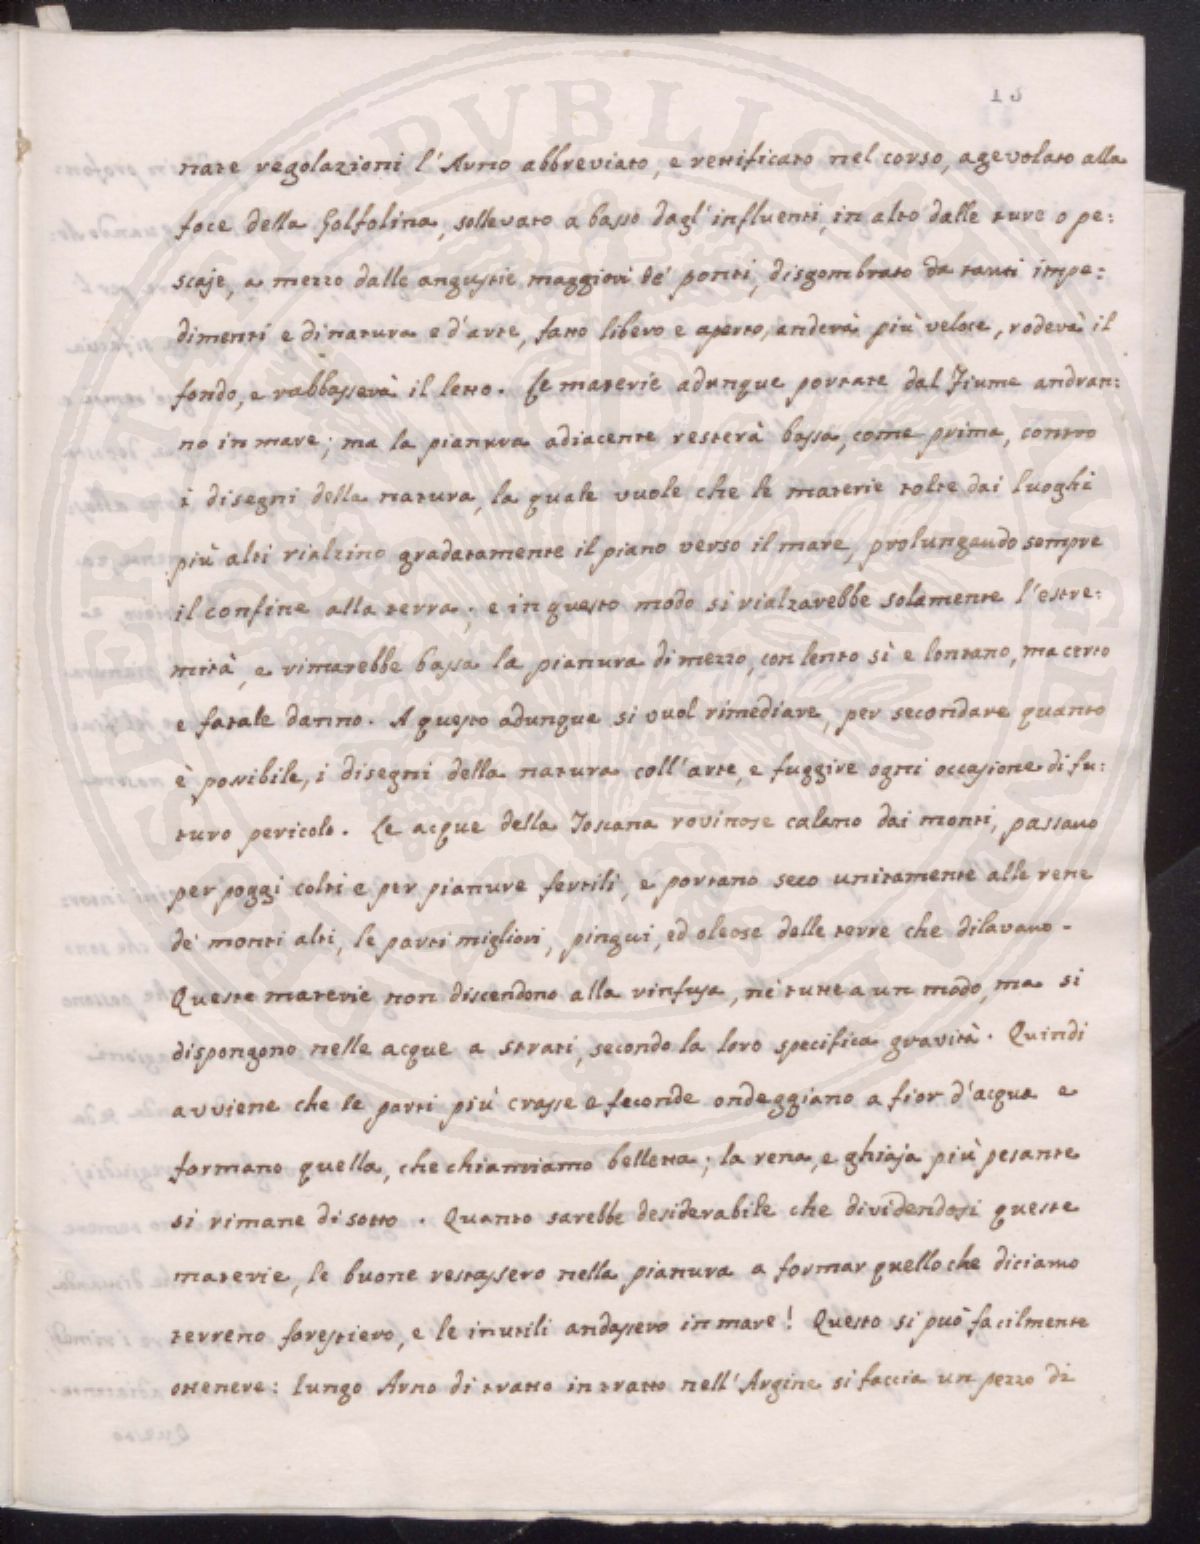 13
nate regolazioni l'Arno abbreviato, e rettificato nel corso, agevolato alla
foce della Golfolina, sollevato a basso dagl'influenti, in alto dalle ture o pe:
scaje, a mezzo dalle angustie maggiori de' ponti, disgombrato da tanti impe:
dimenti e di natura e d'arte, fatto libero e aperto, anderà più veloce, roderà il
fondo, e rabbasserà il letto. Le materie adunque portate dal Fiume andran:
no in mare; ma la pianura adiacente resterà bassa, come prima, contro
i disegni della natura, la quale vuole che le materie tolte dai luoghi
più alti rialzino gradatamente il piano verso il mare, prolungando sempre
il confine alla terra; e in questo modo si rialzarebbe solamente l'estre:
mità, e rimarebbe bassa la pianura di mezzo, con lento sì e lontano, ma certo
e fatale danno. A questo adunque si vuol rimediare, per secondare quanto
è possibile, i disegni della natura coll'arte, e fuggire ogni occasione di fu:
turo pericolo. Le acque della Toscana rovinose calano dai monti, passano
per poggi colti e per pianure fertili, e portano seco unitamente alle rene
de' monti alti, le parti migliori, pingui, ed oleose delle terre che dilavano.
Queste materie non discendono alla rinfusa, nè tutte a un modo, ma si
dispongono nelle acque a strati, secondo la loro specifica gravità. Quindi
avviene che le parti più crasse e feconde ondeggiano a fior d'acqua e
formano quella, che chiamiamo belletta; la rena, e ghiaja più pesante
si rimane di sotto. Quanto sarebbe desiderabile che dividendosi queste
materie, le buone restassero nella pianura a formar quello che diciamo
terreno forestiero, e le inutili andassero in mare! Questo si può facilmente
ottenere: lungo Arno di tratto in tratto nell'Argine si faccia un pezzo di